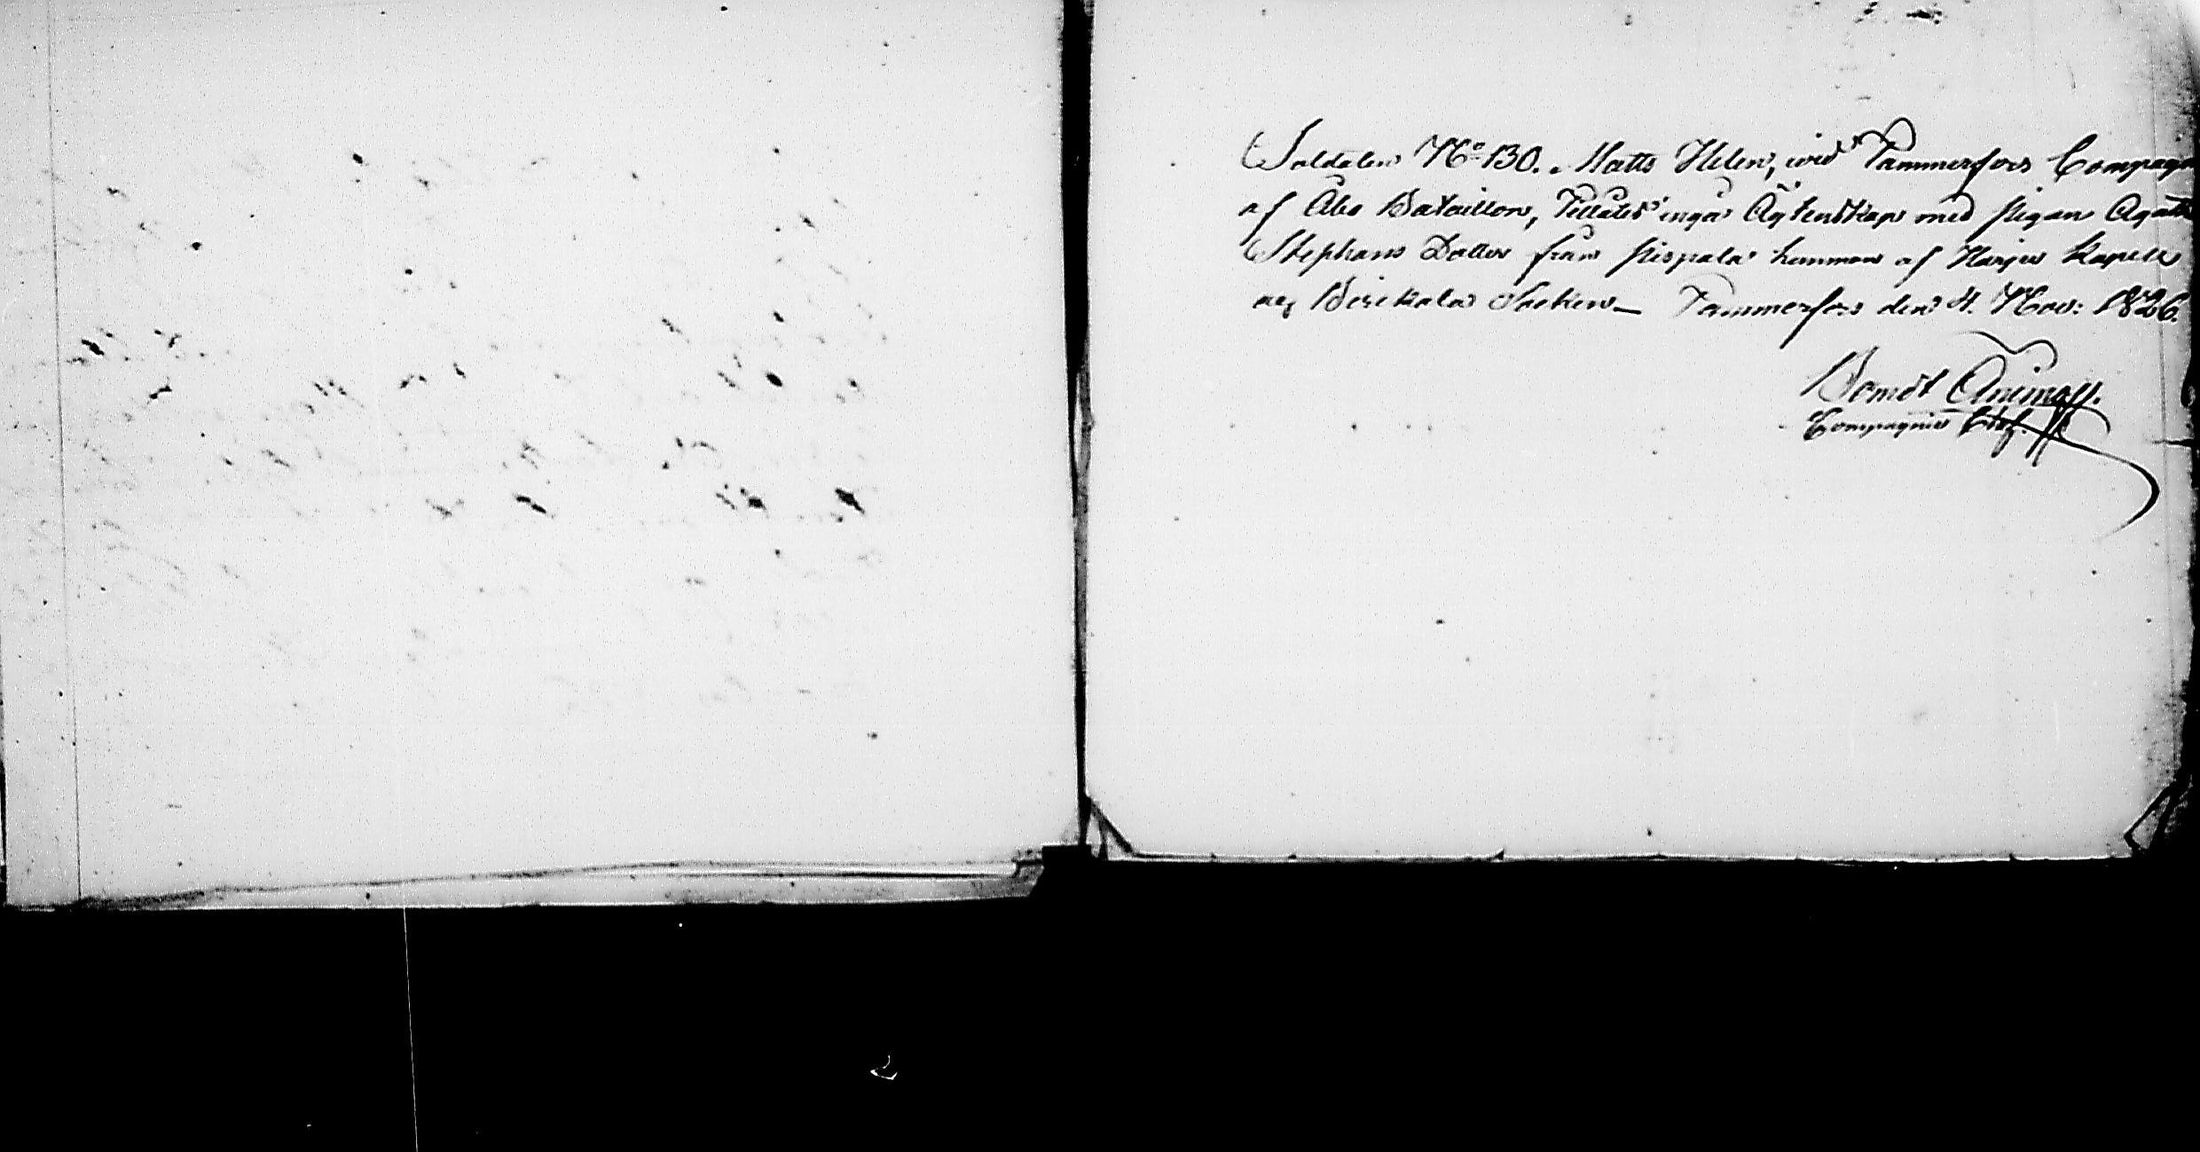 Soldaten No 130. Matts Helen, wid Tammerfors Compagn
af Åbo Bataillon, Tillåtes ingå Äytenskap med pigan Agatha
Stephans Dotter från Pispala hemman af Harju Kapell
af Birckala Socken_ Tammerfors den 4. Nov: 1826.
Berndt
Compagnie Chef.